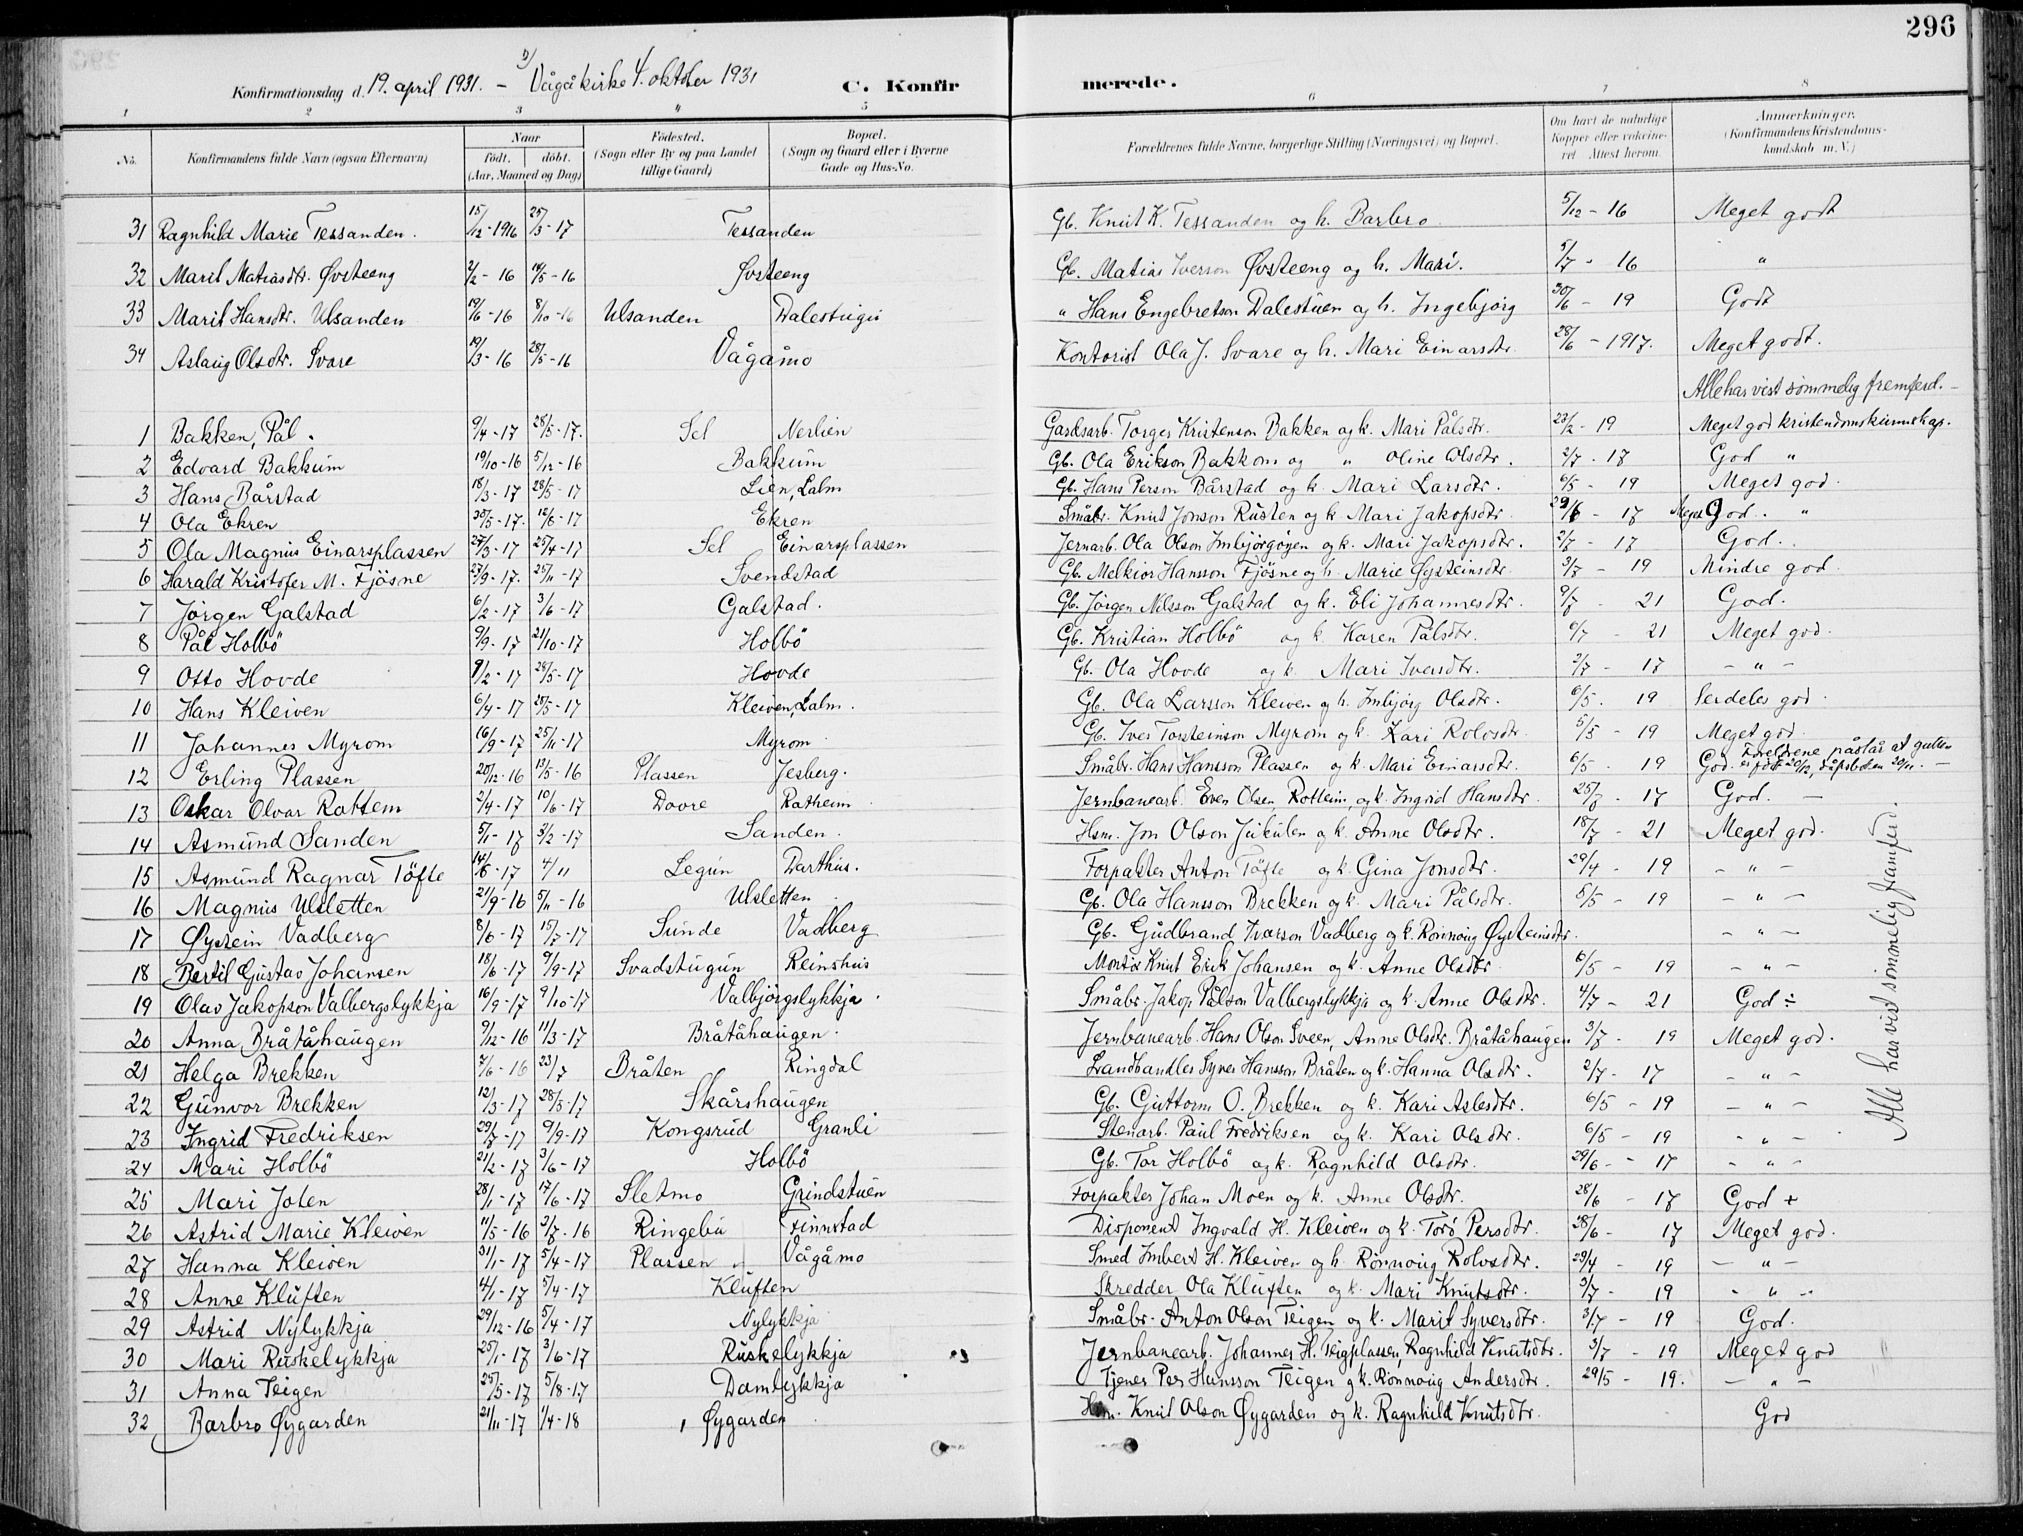 296
Konfirmationsdag d. 19. april 1931. – 2) Vågå kirke 4. oktober 1931 C. Konfirmerede.
1 2 3 4 5 6 7 8
No. Konfirmandens fulde Navn (ogsaa Efternavn) Naar født. døbt. (Aar, Maaned og Dag) Fødested. (Sogn eller By og paa Landet tillige Gaard) Bopæl. (Sogn og Gaard eller i Byerne Gade og Hus-No. Forældrenes fulde Navne, borgerlige Stilling (Næringsvei) og Bopæl. Om havt de naturlige Kopper eller vakcineret. Attest herom. Anmærkninger. (Konfirmandens Kristendomskundskab m. V.)
31 Ragnhild Marie Tessanden. 15/12-1916 25/3-17 Tessanden Gb. Knut K. Tessanden og h. Barbro 5/12-16 Meget godt
32 Marit Matiasdtr. Øvsteeng 2/2-16 14/5-16 Øvsteeng Gb. Matias Iverson Øvsteeng og h. Mari. 5/7-16 "
33 Marit Hansdtr. Ulsanden 19/6-16 8/10-16 Ulsanden Dalestugu " Hans Engebretson Dalestuen og h. Ingebjørg 30/6-19 Godt
34 Aslaug Olsdtr. Svare 19/3-16 28/5-16 Vågåmo Kontorist Ola J. Svare og h. Mari Einarsdtr. 28/6-1917. Meget godt.
Alle har vist sømmelig fremferd. –
1 Bakken, Pål. 9/4-17 28/5-17. Sel Nerlien Gardsarb. Torger Kristenson Bakken og k. Mari Pålsdtr. 23/2-19 Meget god kristendomskunnskap.
2 Edvard Bakkum 19/10-16 5/12-16 Bakkum Gb. Ola Erikson Bakkom og " Oline Olsdtr. 2/7-17 God "
3 Hans Bårstad 18/3-17 28/5-17 Lien, Lalm Gb. Hans Person Bårstad og k. Mari Larsdtr. 6/5-19 Meget god.
4 Ola Ekren 30/5-17. 12/8-17 Ekren Småbr. Knut Jonson Rusten og k. Mari Jakopsdtr. 29/6-17 Meget God. "
5 Ola Magnus Einarsplassen 27/3-17 25/4-17 Sel Einarsplassen Jernarb. Ola Olson Imbjørgøyen og k. Mari Jakopsdtr. 2/7-17 God.
6 Harald Kristofer M. Fjøsne 27/9-17. 25/11-17 Svendstad Gb. Melkior Hansson Fjøsne og h. Marie Øysteinsdtr. 3/7-19 Mindre god.
7 Jørgen Galstad 6/2-17 3/6-17 Galstad. Gb. Jørgen Nilsson Galstad og k. Eli Johannesdtr. 9/7-21 God.
8 Pål Holbö 9/9-17 21/10-17 Holbö Gb. Kristian Holbö og k. Karen Pålsdtr. 6/7-21 Meget god.
9 Otto Hovde 9/2-17 28/5-17 Hovde Gb. Ola Hovde og k. Mari Iversdtr. 2/7-17 – " –
10 Hans Kleiven 6/4-17 28/5-17 Kleiven, Lalm. Gb. Ola Larsson Kleiven og h. Imbjørg Olsdtr. 6/5. 19 Serdeles god.
11 Johannes Myrom 16/9-17 25/11-17 Myrom Gb. Iver Torsteinson Myrom og k. Kari Rolvsdtr. 5/5-19 Meget god.
12 Erling Plassen 20/12-16 13/5-16 Plassen Jesberg. Småbr. Hans Hansson Plassen og k. Mari Einarsdtr. 6/5-19 God. Foreldrene påstår at gutten er født 20/12, dåpsboken 20/11. –
13 Oskar Olvar Rottem 2/4-17 10/6-17 Dovre Ratheim Jernbanearb. Even Olsen Rotleim, og k. Ingrid Hansdtr. 25/8-17 God. –
14 Asmund Sanden 5/1-17 3/2-17 Sanden. Hsm. Jon Olson Jukulen og k. Anne Olsdtr. 18/7-21 Meget god.
15 Asmund Ragnar Töfte 14/6-17 4/11 Legun Darthus. Forpakter Anton Töfte og k. Gina Jonsdtr. 29/4-19 – " –
16 Magnus Ulsletten 21/9-16 5/11-16 Ulsletten Gb. Ola Hansson Brekken og k. Mari Pålsdtr. 5/5-19 – " –
17 Øystein Vadberg 8/6-17 15/7-17 Sunde Vadberg Gb. Gudbrand Ivarson Vadberg og k. Rønnoug Øysteinsdtr. – " –
18 Bertil Gustav Johansen 18/6-17 9/9-17 Svadstugun Reinshus Montør Knut Erik Johansen og k. Anne Olsdtr. 6/5-19 – " –
19 Olav Jakopson Valbergslykkja 16/9-17 9/10-17 Valbjörgslykkja. Småbr. Jakop Pålson Valbergslykkja og k. Anne Olsdtr. 4/7-21 God ÷
20 Anna Bråtåhaugen 9/12-16 11/3-17 Bråtåhaugen. Jernbanearb. Hans Olson Sveen, Anne Olsdtr. Bråtåhaugen 3/7-19 Meget god.
21 Helga Brekken 7/6-16 23/7 Bråten Ringdal Landhandler Syver Hansson Bråten og k. Hanna Olsdtr. 2/7-17 – " –
22 Gunvor Brekken 12/3-17 28/5-17 Skårshaugen Gb. Guttorm O. Brekken og k. Kari Aslesdtr. 6/5-19 – " –
23 Ingrid Fredriksen 29/7-17 9/9-17 Kongsrud Granli Stenarb. Paul Fredriksen og k. Kari Olsdtr. 6/5-19 – " –
24 Mari Holbö 21/2-17 3/6-17 Holbö Gb. Tor Holbö og k. Ragnhild Olsdtr. 29/6-17 – " –
25 Mari Joten 28/1-17 17/6-17 Sletmo Grindstuen Forpakter Johan Moen og k. Anne Olsdtr. 28/6-17 God +
26 Astrid Marie Kleiven 11/5-16 2/7-16 Ringebu Finnstad Disponent Ingvald H. Kleiven og k. Torö Persdtr. 28/6-17 Meget god.
27 Hanna Kleiven 31/1-17 5/4-17 Plassen Vågåmo Smed Imbert H. Kleiven og h. Rönnoug Rolvsdtr. 29/4-19 – " –
28 Anne Kluften 4/1-17 5/4-17 Kluften Skredder Ola Kluften og k. Mari Knutsdtr. 3/7-19 – " –
29 Astrid Nylykkja 29/12-16 5/4-17 Nylykkja Småbr. Anton Olson Teigen og k. Marit Syversdtr. 3/7-19 God.
30 Mari Ruskelykkja 25/1-17 3/6-17 Ruskelykkja Jernbanearb. Johannes H. Teigplassen, Ragnhild Knutsdtr. 3/7-19 Meget god
31 Anna Teigen 25/5-17 5/8-17 Damlykkja Tjener Per Hansson Teigen og k. Rönnoug Andersdtr. 29/5-19. – " –
32 Barbro Øygarden 21/11-17 1/4-18 Øygarden Hsm. Knut Olson Øygarden og k. Ragnhild Knutsdtr. God
Alle har vist sömmelig framferd.